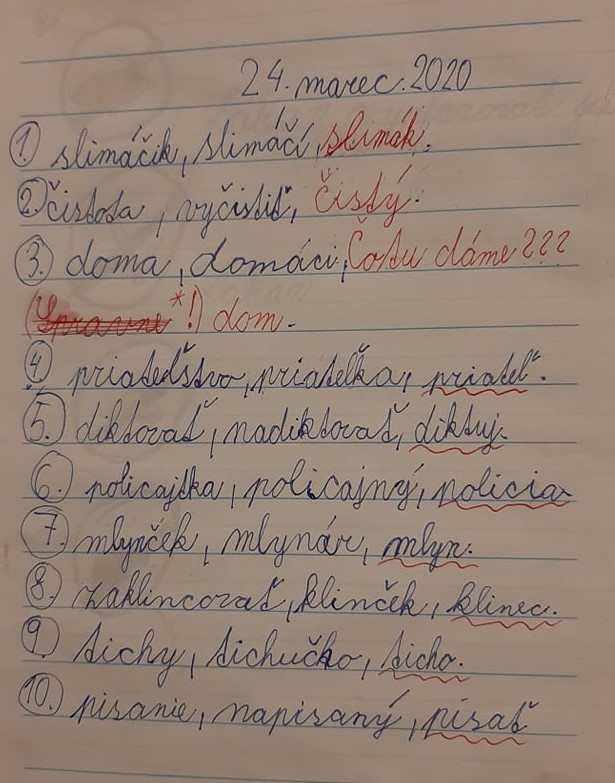 24. marec. 2020
1. slimáčik, slimáčí, slimák.
2. čistota, vyčistiť, čistý.
3. doma, domáci, Čo tu dáme???
(Spravne *!) dom.
4. priateľstvo, priateľka, priateľ.
5. diktovať, nadiktovať, diktuj.
6. policajtka, policajný, policia
7. mlynček, mlynár, mlyn.
8. zaklincovať, klinček, klinec.
9. tichy, tichučko, ticho.
10. pisanie, napisaný, písať